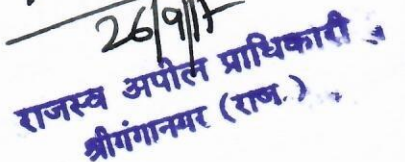 26/9/17
राजस्व अपील प्राधिकारी
श्रीगंगानगर (राज.)